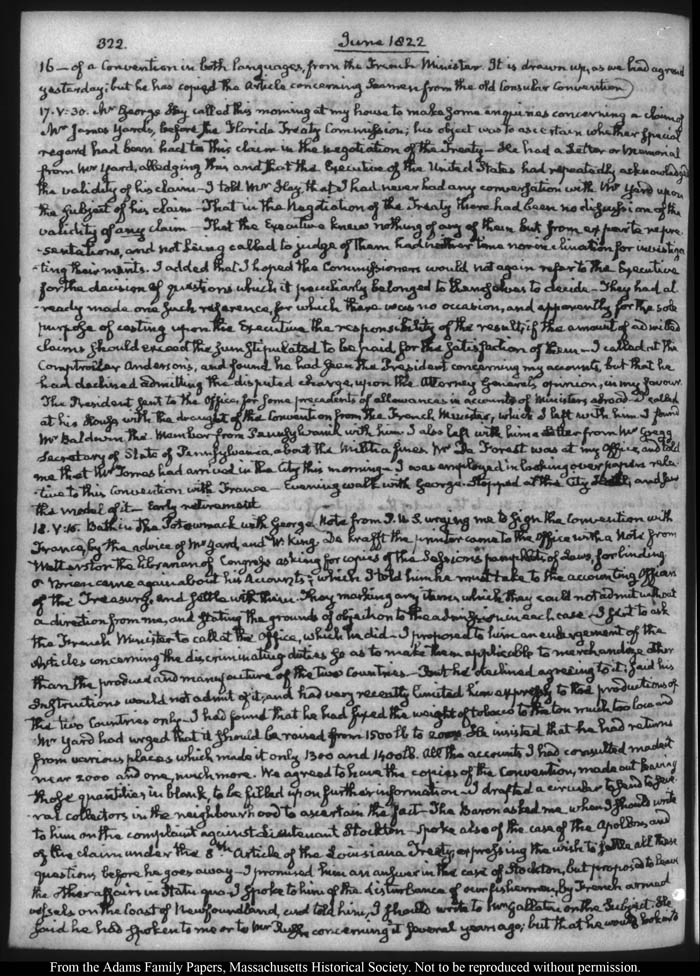 322.
June 1822
16 — of a Convention in both languages, from the French Minister. It is drawn up, as we had agreed
yesterday; but he has copied the Article concerning Seamen from the old Consular Convention
17. V: 30. Mr George Hay called this morning at my house to make some enquiries concerning a claim of
Mr James Yards, before the Florida Treaty Commission; his object was to ascertain whether special
regard had been had to this claim in the negotiation of the Treaty — He had a Letter or Memorial
from Mr Yard, alledging this and that the Executive of the United States had repeatedly acknowledged
the validity of his claim — I told Mr Hay that I had never had any conversation with Mr Yard upon
the subject of his claim — That in the Negotiation of the Treaty there had been no discussion of the
validity of any claim — That the Executive knew nothing of any of them but from ex parte repre-
-sentations, and not being called to judge of them had neither time nor inclination for investiga
-ting their merits. I added that I hoped the Commissioners would not again refer to the Executive
for the decision of questions which it peculiarly belonged to themselves to decide — They had al-
-ready made one such reference, for which there was no occasion, and apparently for the sole
purpose of casting upon the Executive the responsibility of the result, if the amount of admitted
claims should exceed the sum stipulated to be paid for the satisfaction of them — I called at the
Comptroller Andersons, and found he had seen the President concerning my accounts, but that he
had declined admitting the disputed charge, upon the Attorney General's opinion, in my favour.
The President sent to the Office, for some precedents of allowances in accounts of Ministers abroad. I called
at his House with the draught of the Convention from the French Minister, which I left with him. I found
Mr Baldwin the Member from Pennsylvania with him. I also left with him a Letter from Mr Gregg
Secretary of State of Pennsylvania, about the Militia fines. Mr De Forest was at my Office, and told
me that Mr Torres had arrived in the City this morning — I was employed in looking over papers rela-
-tive to this Convention with France — Evening walk with George. Stopped at the City and saw
the model of it — Early retirement.
18. V: 15. Bath in the Potowmack with George. Note from P.U.S. urging me to sign the Convention with
France, by the advice of Mr Yard, and Mr King. De Krafft the printer came to the Office with a Note from
Watterston the Librarian of Congress asking for copies of the Sessions pamphlets of Laws, for binding
O'Brien came again about his Accounts; which I told him he must take to the accounting Officers
of the Treasury, and settle with them. They marking any items which they could not admit without
a direction from me, and stating the grounds of objection to the admission in each case. I sent to ask
the French Minister to call at the Office, which he did — I proposed to him an enlargement of the
Articles concerning the discriminating duties so as to make them applicable to merchandize other
than the produce and manufacture of the two Countries — But he declined agreeing to it; said his
Instructions would not admit of it, and had very recently limited him expressly to the productions of
the two Countries only — I had found that he had fixed the weight of tobacco to the ton much too low and
Mr Yard had urged that it should be raised from 1500 lb to 2000. He insisted that he had returns
from various places which made it only 1300 and 1400 lb. All the accounts I had consulted made it
near 2000 and one, much more. We agreed to have the copies of the Convention, made out leaving
those quantities in blank to be filled upon further information — I drafted a circular to send to seve-
-ral collectors in the neighbourhood to ascertain the fact — The Baron asked me when I should write
to him on the complaint against Lieutenant Stockton — spoke also of the case of the Apollon, and
of the claim under the 8th Article of the Louisiana Treaty; expressing the wish to settle all these
questions before he goes away — I promised him an answer in the case of Stockton, but proposed to leave
the other affairs in statu quo. I spoke to him of the disturbance of our fishermen, by French armed
vessels on the Coast of Newfoundland, and told him, I should write to Mr Gallatin on the subject. He
said he had spoken to me or to Mr Rush concerning it several years ago; but that he would
From the Adams Family Papers, Massachusetts Historical Society. Not to be reproduced without permission.